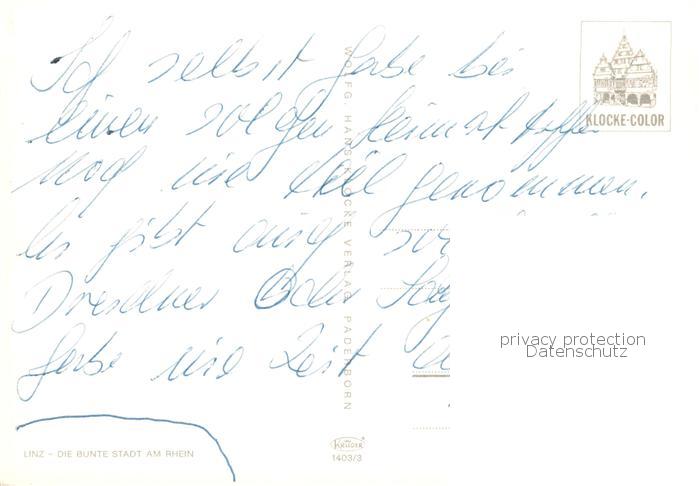 Ich selbst habe bei
einen solchen Heimattreffen
noch nie teil genommen.
Es gibt auch
Dresdner Oder
habe nie Zeit
KLOCKE-COLOR
WOLFG. HANS KLOCKE VERLAG PADERBORN
privacy protection
Datenschutz
LINZ - DIE BUNTE STADT AM RHEIN
KRÜGER
1403/3